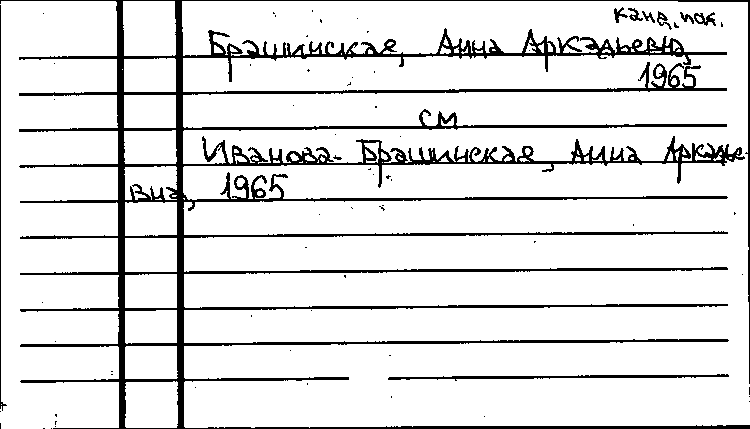 канд. иск.
Брашинская, Анна Аркадьевна,
1965
см
Иванова-Брашинская, Анна Аркадье-
вна, 1965